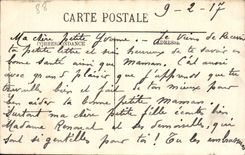 38
9-2-17
CARTE POSTALE
Ma chère petite Yvonne. Je viens de recevoir
CORRESPONDANCE ADRESSE
ta petite lettre et suis heureux de te savoir en
bonne santé ainsi que Maman. C'est aussi
avec grand plaisir que j'apprends que tu
travailles bien et fait de ton mieux pour
aider ta bonne petite maman
Surtout ma chère petite fille écoute bien
Madame et ses demoiselles, qui
sont si gentilles pour toi! Tu les embrasseras